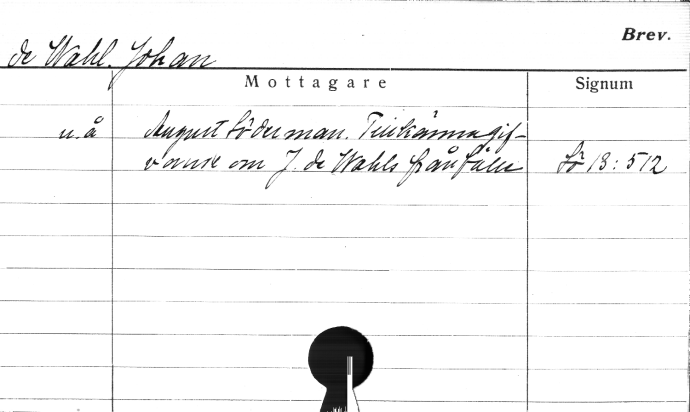 Brev.
de Wahl. Johan
Mottagare Signum
u. å August Söderman. Tillkännagif-
vande om J. de Wahls frånfälle Sö 13: 512